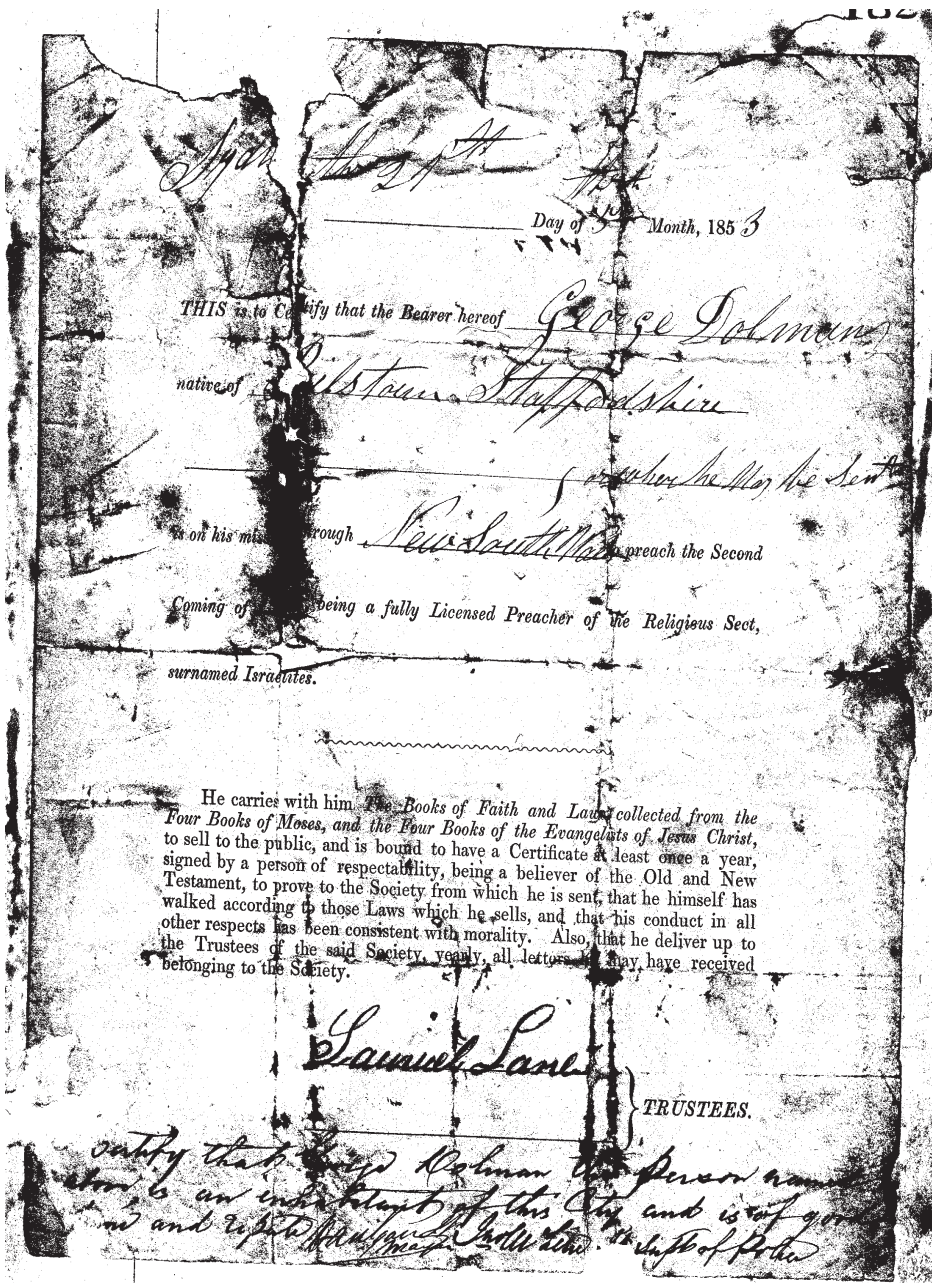 182
Sydn the 24th
Day of 3 Month, 1853
THIS is to Certify that the Bearer hereof George Dolman
native of Bilstown Staffordshire
or wher he May be Sent
is on his mis rough New South Wales preach the Second
Coming of being a fully Licensed Preacher of the Religious Sect,
surnamed Israelites.
He carries with him The Books of Faith and Laws, collected from the
Four Books of Moses, and the Four Books of the Evangelists of Jesus Christ,
to sell to the public, and is bound to have a Certificate at least once a year,
signed by a person of respectability, being a believer of the Old and New
Testament, to prove to the Society from which he is sent, that he himself has
walked according to those Laws which he sells, and that his conduct in all
other respects has been consistent with morality. Also, that he deliver up to
the Trustees of the said Society, yearly, all letters he may have received
belonging to the Society.
Samuel Lane
TRUSTEES.
certify that George Dolman the person named
above is an inhabitant of this City and is of good
and repute Supt of Police